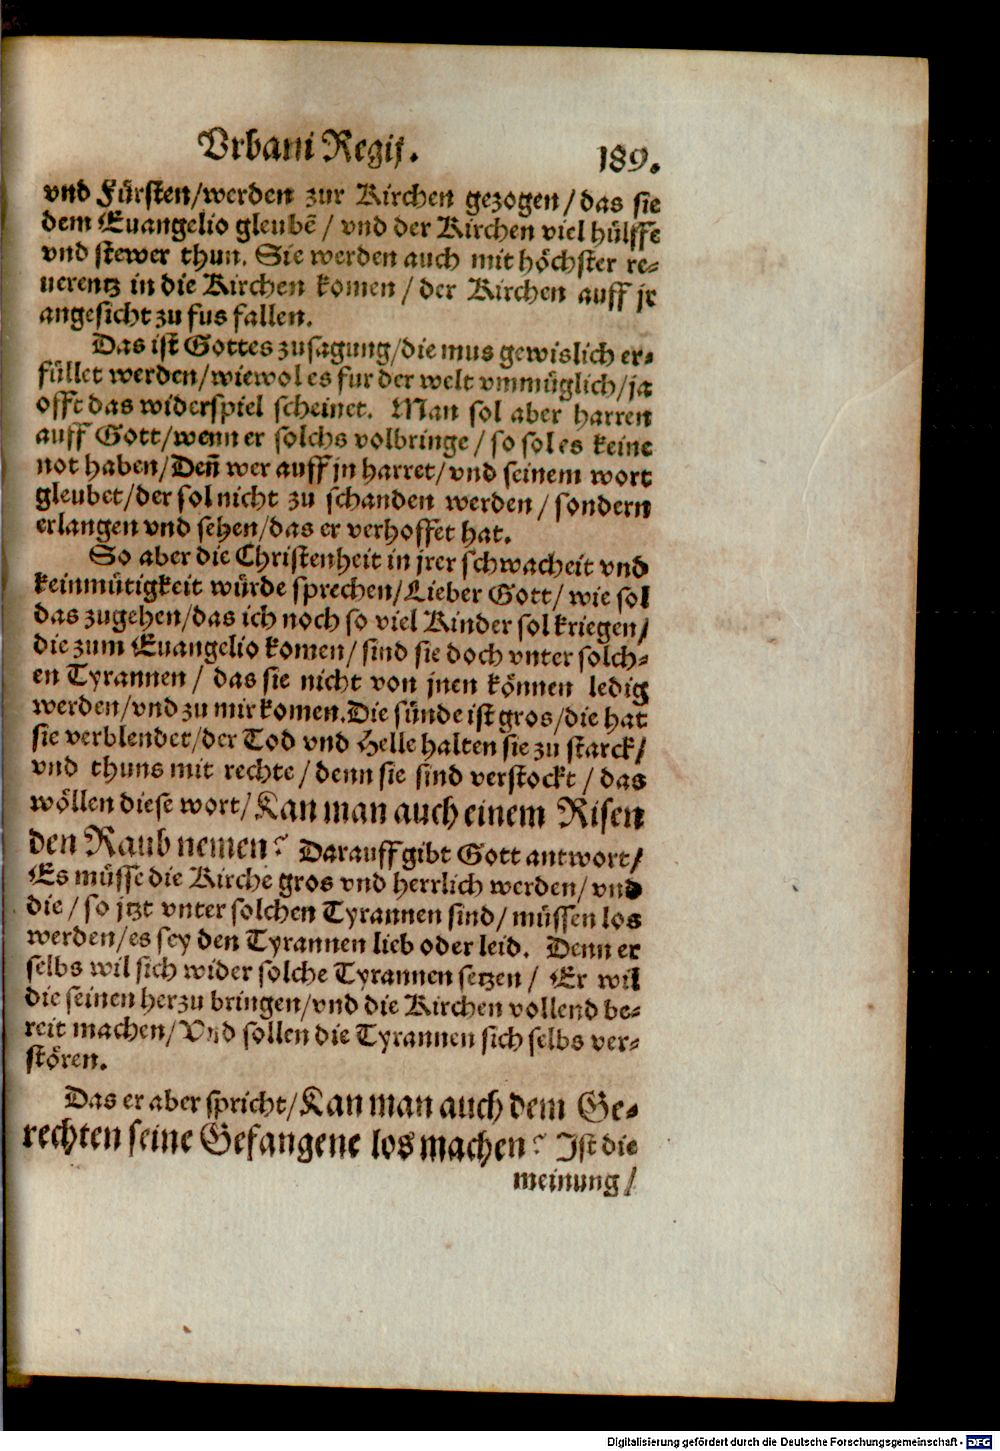 Vrbani Regij. 189.
vnd Fürsten/werden zur Kirchen gezogen/das sie
dem Euangelio gleubẽ/ vnd der Kirchen viel hülffe
vnd stewer thun. Sie werden auch mit höchster re-
uerentz in die Kirchen komen/der Kirchen auff jr
angesicht zu fus fallen.
Das ist Gottes zusagung/die mus gewislich er-
füllet werden/wiewol es fur der welt vnmüglich/ja
offt das widerspiel scheinet. Man sol aber harren
auff Gott/wenn er solchs volbringe/so sol es keine
not haben/Deñ wer auff jn harret/vnd seinem wort
gleubet/der sol nicht zu schanden werden/sondern
erlangen vnd sehen/das er verhoffet hat.
So aber die Christenheit in jrer schwacheit vnd
keinmütigkeit würde sprechen/Lieber Gott/wie sol
das zugehen/das ich noch so viel Kinder sol kriegen/
die zum Euangelio komen/sind sie doch vnter solch-
en Tyrannen/ das sie nicht von jnen können ledig
werden/vnd zu mir komen.Die sünde ist gros/die hat
sie verblendet/der Tod vnd Helle halten sie zu starck/
vnd thuns mit rechte/denn sie sind verstockt/das
wöllen diese wort/Kan man auch einem Risen
den Raub nemen? Darauff gibt Gott antwort/
Es müsse die Kirche gros vnd herrlich werden/vnd
die/so jtzt vnter solchen Tyrannen sind/müssen los
werden/es sey den Tyrannen lieb oder leid. Denn er
selbs wil sich wider solche Tyrannen setzen/ Er wil
die seinen herzu bringen/vnd die Kirchen vollend be-
reit machen/Vnd sollen die Tyrannen sich selbs ver-
stören.
Das er aber spricht/Kan man auch dem Ge-
rechten seine Gefangene los machen? Ist die
meinung/
Digitalisierung gefördert durch die Deutsche Forschungsgemeinschaft - DFG